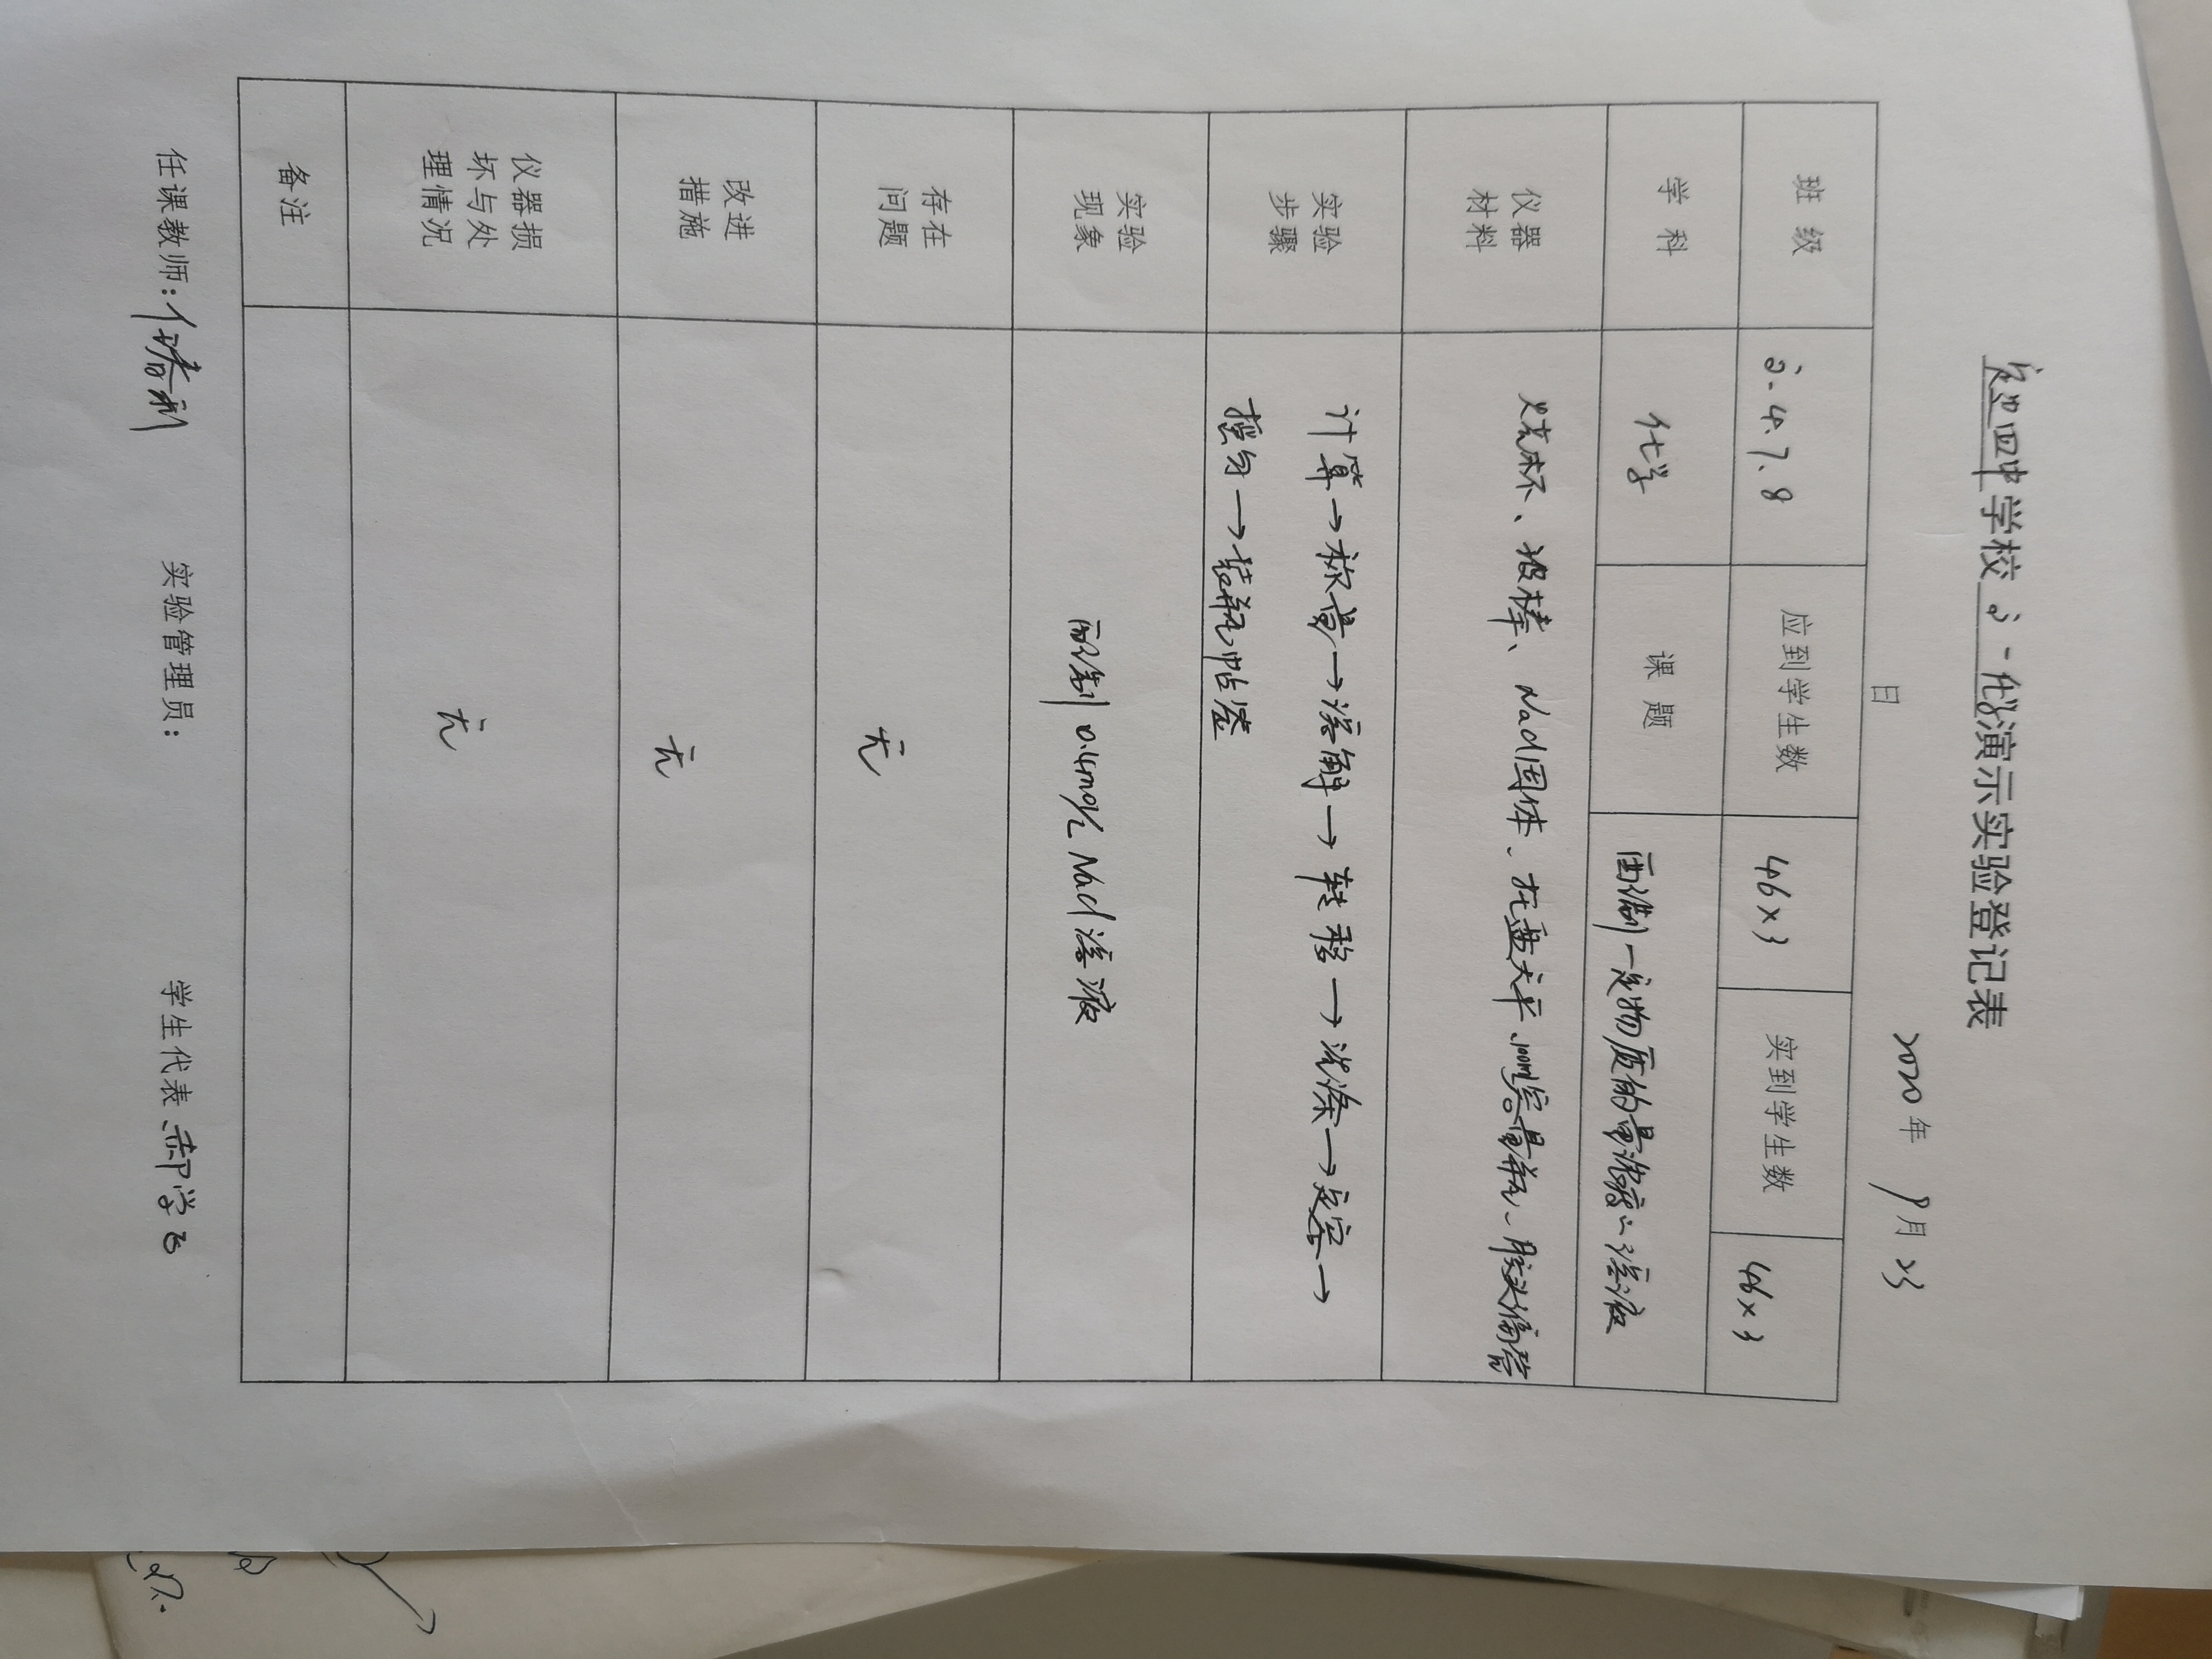 定边四中学校 高一化学演示实验登记表
2020年 9月 23
日
班级 2.4.7.8 应到学生数 46×3 实到学生数 46×3
学科 化学 课题 配制一定物质的量浓度的溶液
仪器
材料
烧杯、玻棒、NaCl固体、托盘天平、100ml容量瓶、胶头滴管
实验
步骤
计算→称量→溶解→转移→洗涤→定容→
摇匀→装瓶贴签
实验
现象
配制0.4mol/L NaCl溶液
存在
问题
无
改进
措施
无
仪器损
坏与处
理情况
无
备注
任课教师: 实验管理员: 学生代表 郝学